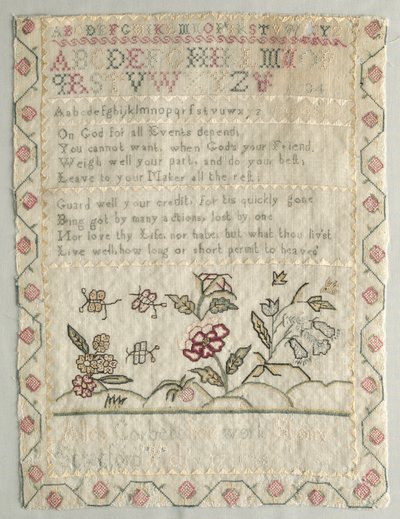 ABCDEFGHIKLMNOPQRST W XYZ
ABCDEFGHIKLMNOP
QRSTVW XYZ
Aabcdefghijklmnopqrsftuvwxyz
On God for all Events depend;
You cannot want, when God's your Friend.
Weigh well your part, and do your best;
Leave to your Maker all the rest;
Guard well your credit, for tis quickly gone
Being got by many actions, lost by one
Nor love thy Life, nor hate; but what thou liv'st
Live well, how long or short permit to heaven
Corbet her work